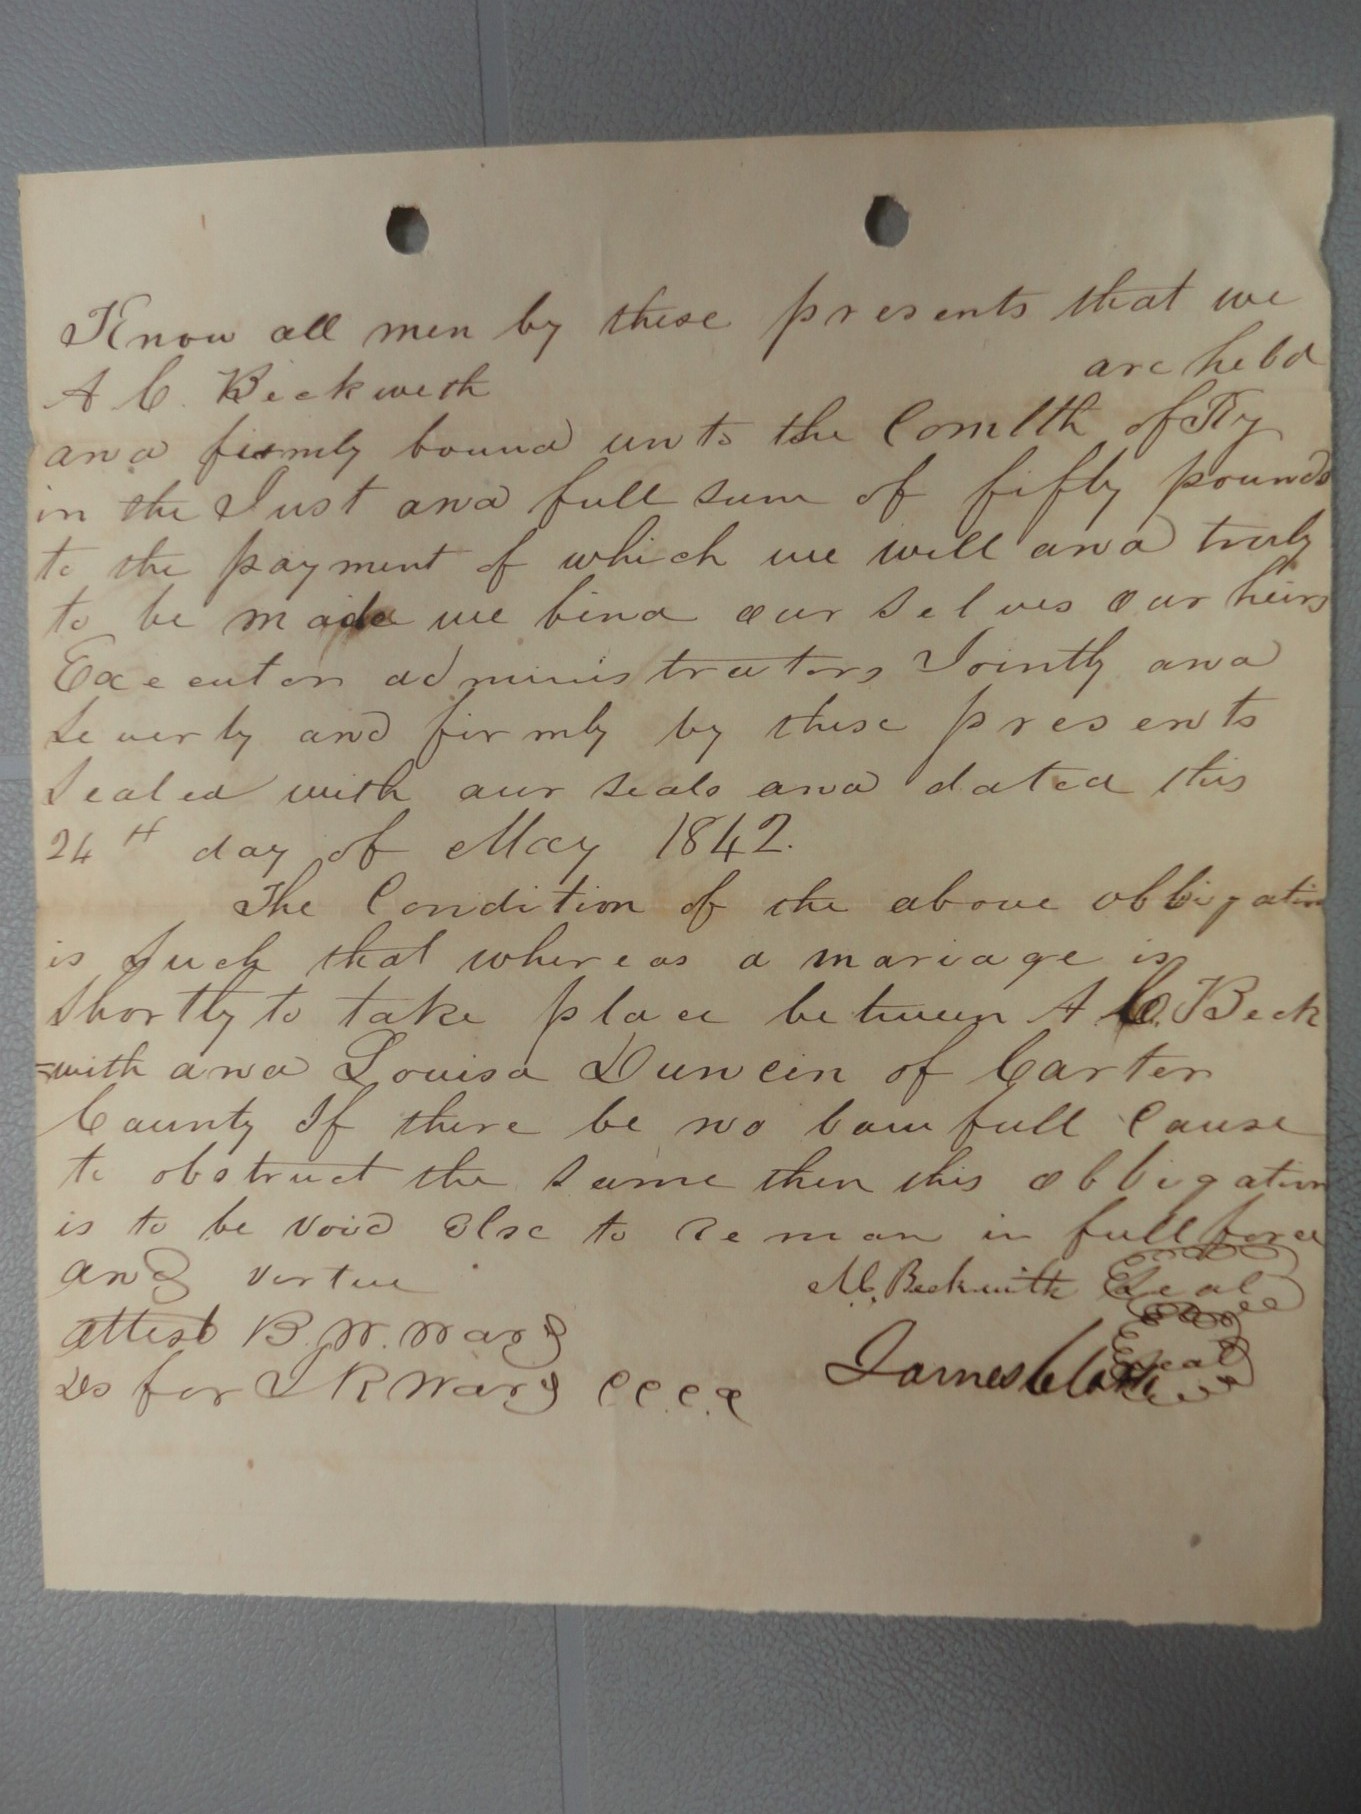 Know all men by these presents that we
A C. Beckweth are held
and firmly bound unto the Comlth of Ky
in the Just and full sum of fifty pounds
to the payment of which we will and truly
to be made we bind our selves our heirs
Executors administrators Jointly and
severly and firmly by these presents
sealed with our seals and dated this
24th day of May 1842.
The Condition of the above obbligation
is such that whereas a mariage is
shortly to take place between A C. Beck
=with and Louisa Duncin of Carter
County If there be no lawfull Cause
to obstruct the same then this obbligation
is to be void else to reman in full force
and vertue
A C. Beckwith Seal
attest B. W. Ward
James Clark Seal
Ds for J R Ward C.C.C.C